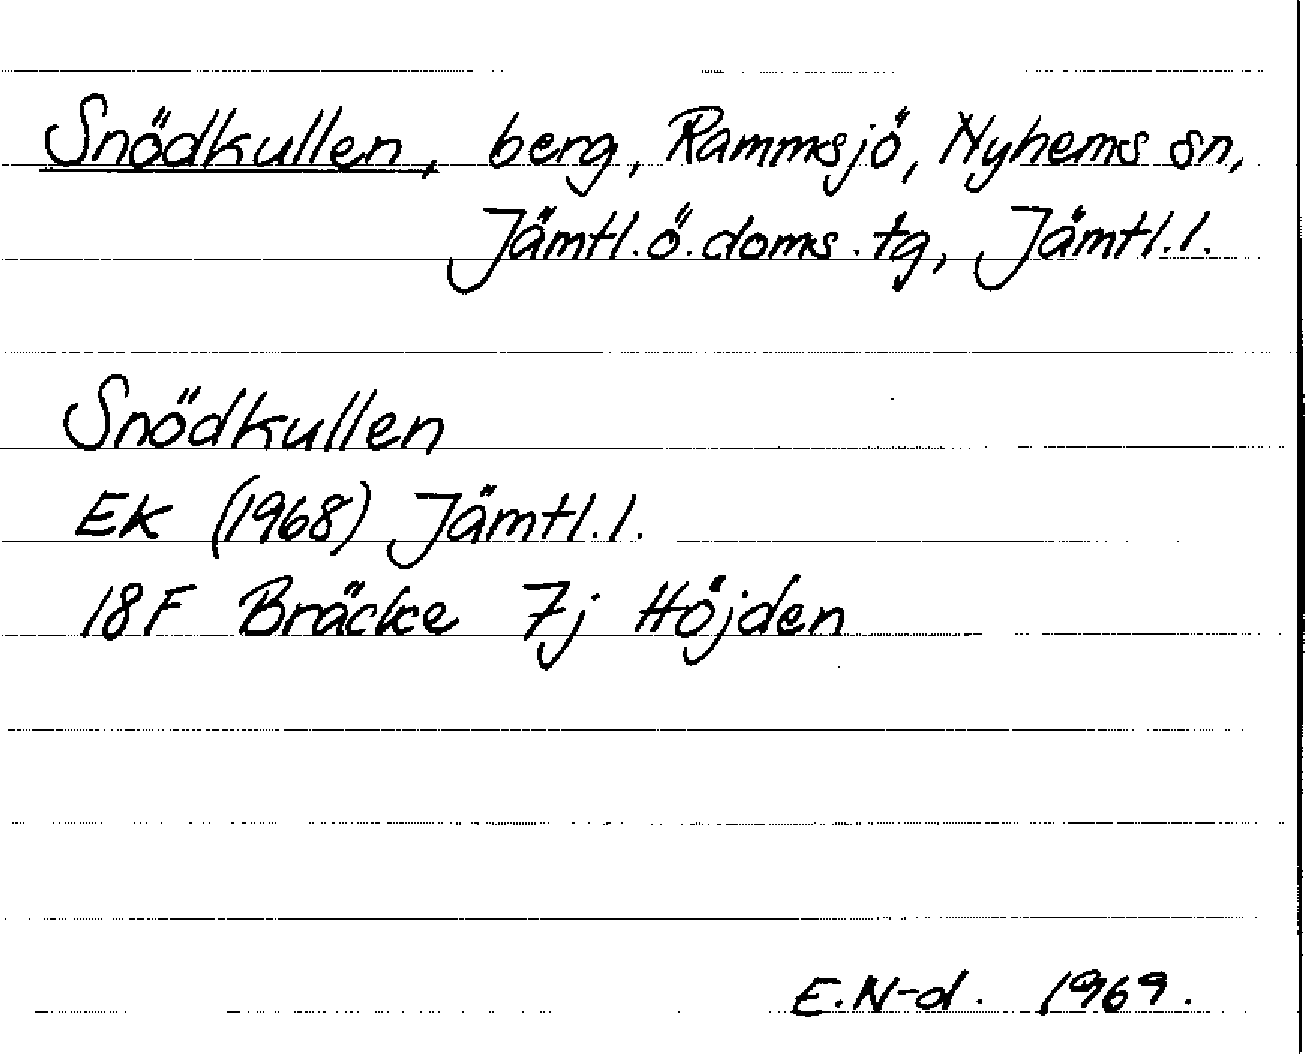 Snödkullen, berg, Rammsjö, Nyhems sn,
Jämtl.ö.doms.tg, Jämtl.l.
Snödkullen
EK (1968) Jämtl.l.
18F Bräcke 7j Höjden
E.N-d. 1969.